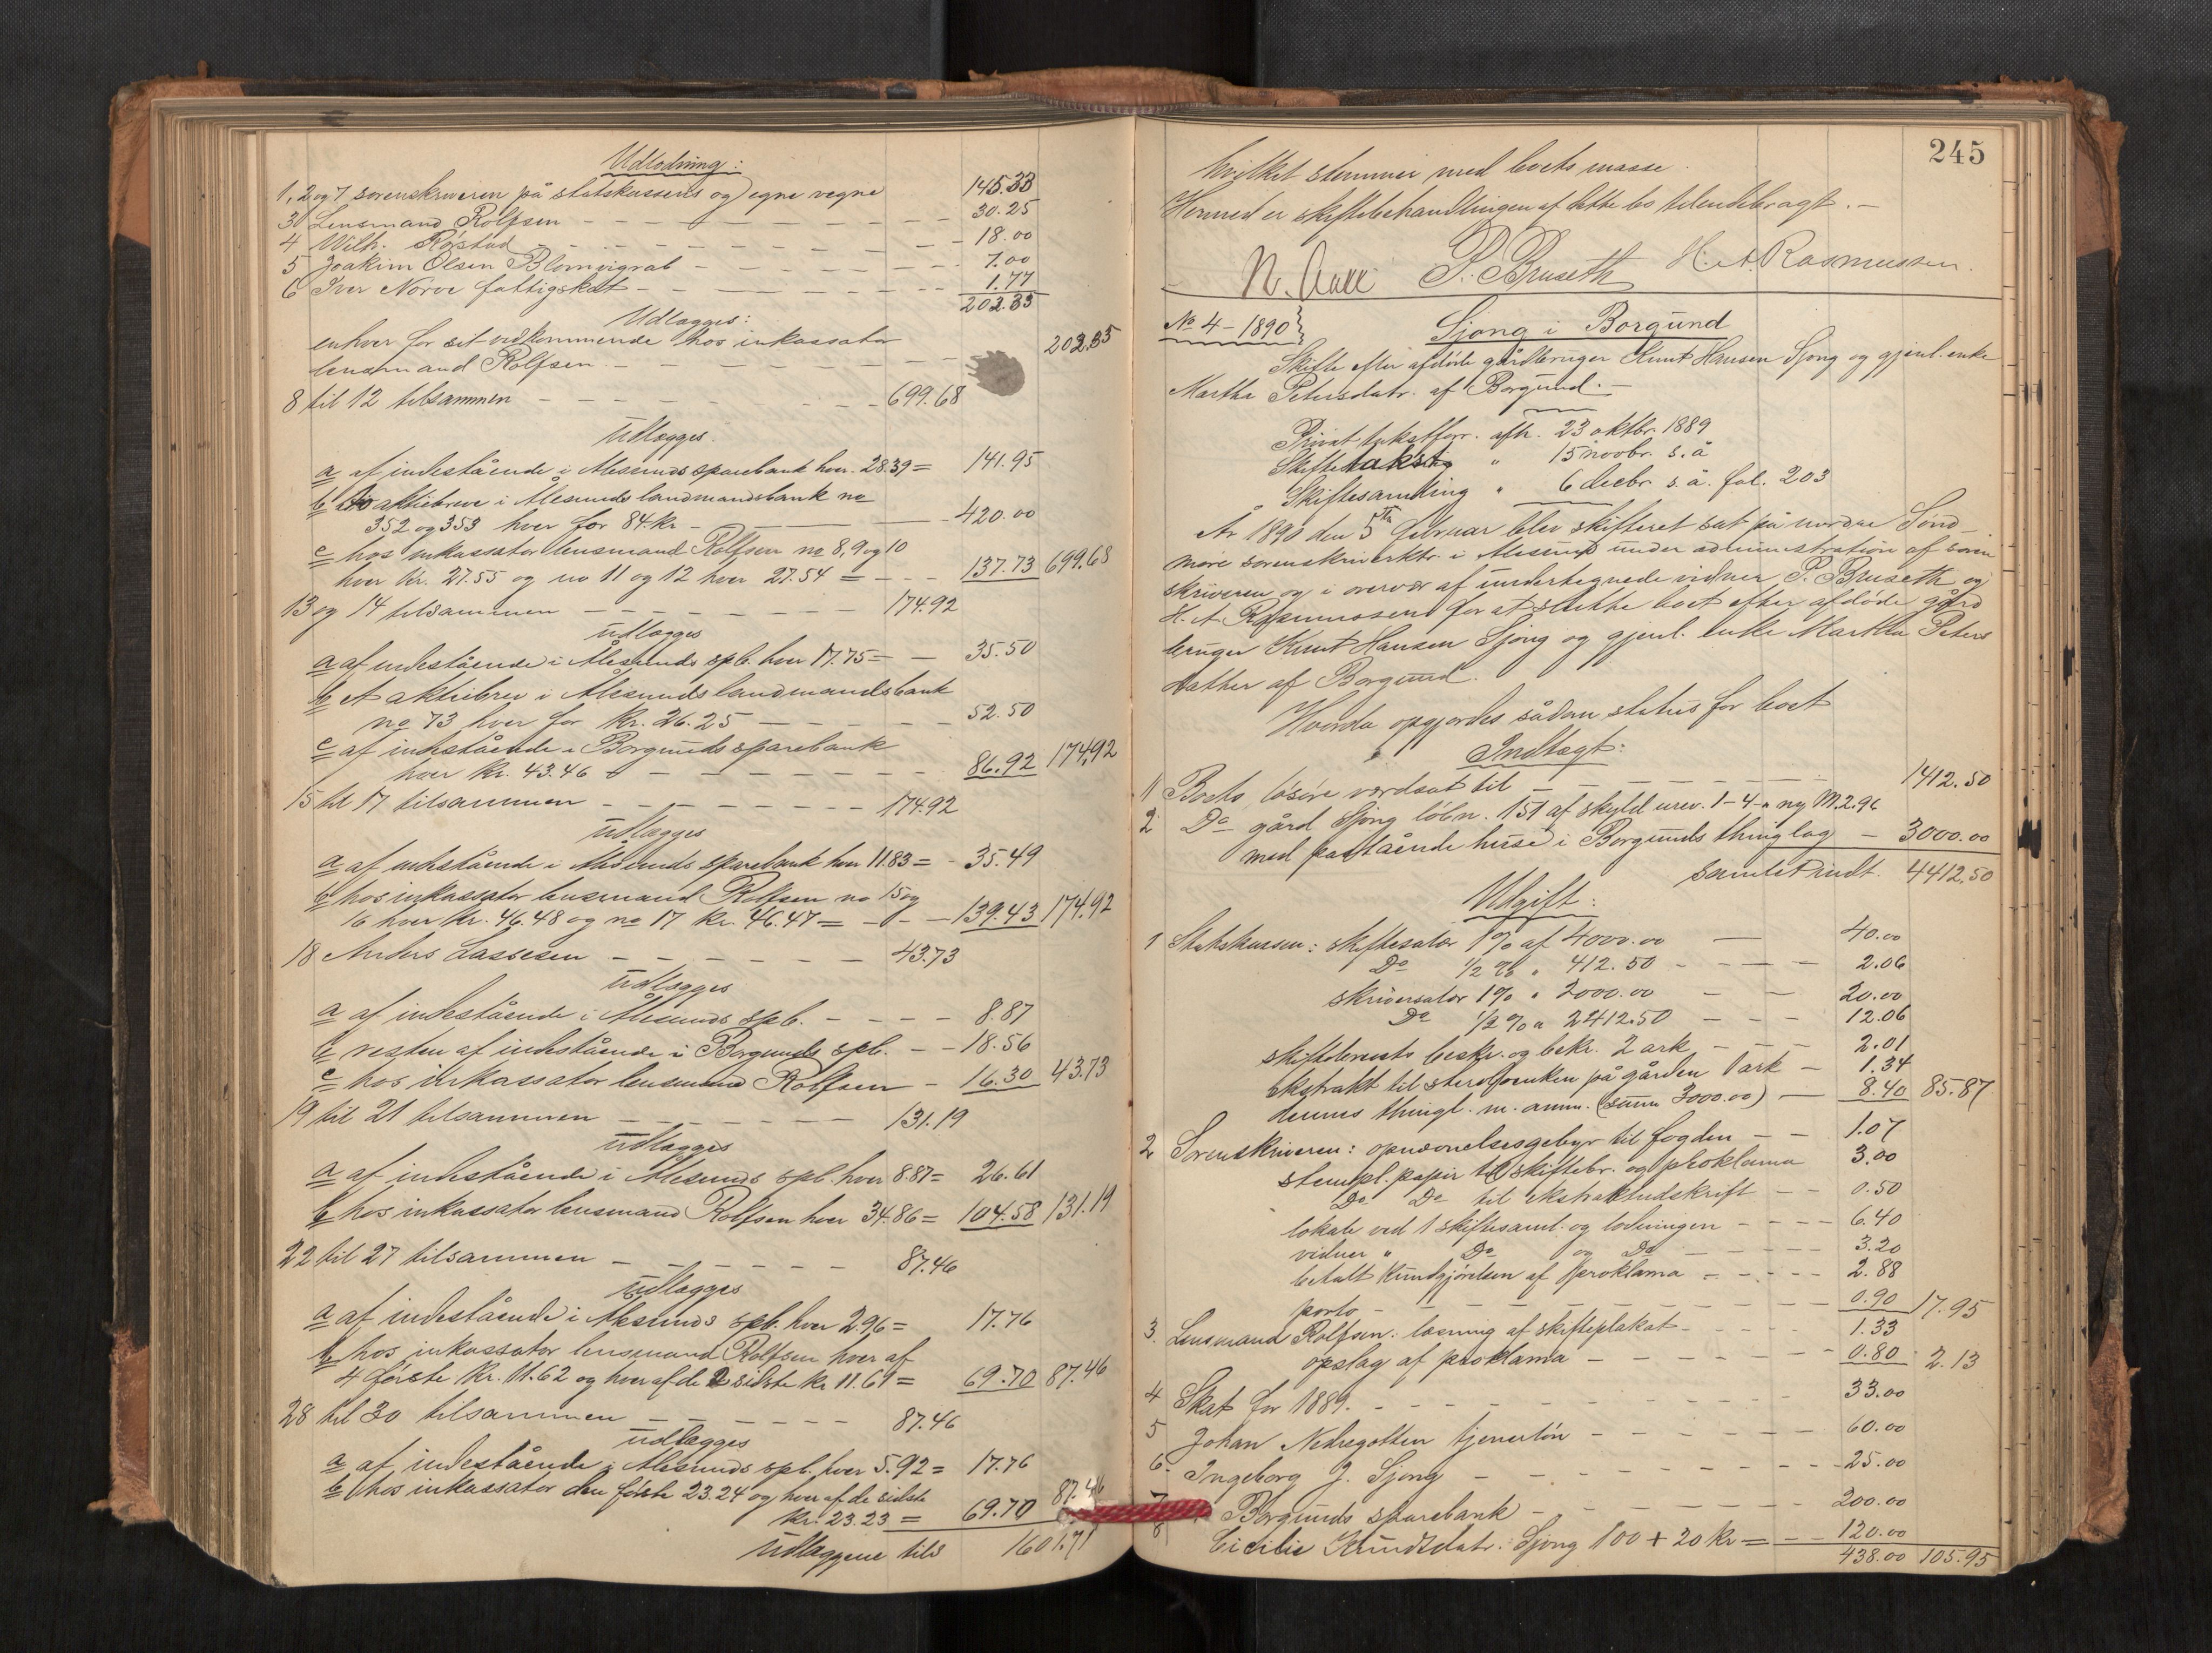 Udlodning:
1, 2 og 7 sorenskriveren på statskassens og egne vegne 145.33
3 Lensmand Rolfsen 30.25
4 Wilh. Røstad 18.00
5 Joakim Olsen Blomvigrab 7.00
6 Iver Norve fattigskat 1.77
202.35
Udlægges:
enhver for sit vedkommende hos inkassator
lensmand Rolfsen 202.35
8 til 12 tilsammen 699.68
Udlægges.
a af indestående i Ålesunds sparebank hver 28.39 = 141.95
b to aktiebreve i Ålesunds landmandsbank no
352 og 353 hver for 84 kr 420.00
c hos inkassator lensmand Rolfsen no 8, 9 og 10
hver kr. 27.55 og no 11 og 12 hver 27.54 = 137.73 699.68
13 og 14 tilsammen 174.92
Udlægges
a af indestående i Ålesunds spb. hver 17.75 = 35.50
b Et aktiebrev i Ålesunds landmandsbank
no 73 hver for kr. 26.25 52.50
c af indestående i Borgunds sparebank
hver kr. 43.46 86.92 174.92
15 til 17 tilsammen 174.92
Udlægges
a af indestående i Ålesunds sparebank hver 11.83 = 35.49
b hos inkassator lensmand Rolfsen no 15 og
16 hver kr. 46.48 og no 17 kr. 46.47 = 139.43 174.92
18 Anders Lassesen 43.73
Udlægges
a af indestående i Ålesunds spb. 8.87
b resten af indestående i Borgunds spb. 18.56
c hos inkassator lensmand Rolfsen 16.30 43.73
19 til 21 tilsammen 131.19
Udlægges
a af indestående i Ålesunds spb. hver 8.87 = 26.61
b hos inkassator lensmand Rolfsen hver 34.86 = 104.58 131.19
22 til 27 tilsammen 87.46
Udlægges
a af indestående i Ålesunds spb. hver 2.96 = 17.76
b hos inkassator lensmand Rolfsen hver af
4 første kr. 11.62 og hver af de 2 sidste kr 11.61 = 69.70 87.46
28 til 30 tilsammen 87.46
udlægges
a af indestående i Ålesunds spb. hver 5.92 = 17.76
b hos inkassator den første 23.24 og hver af de sidste
kr. 23.23 = 69.70 87.46
Udlæggene tils 1601.71
245
hvilket stemmer med boets masse
Hermed er skiftebehandlingen af dette bo tilendebragt. –
N. Aall P. Bruseth H. A. Rasmussen.
No 4 – 1890
Sjong i Borgund
Skifte efter afdøde gårdbruger Knut Hansen Sjong og gjenl. enke
Martha Petersdatr. af Borgund. –
Privat takstforr. afh. 23 oktbr. 1889
Skiftetakst " 15 novbr. s. å
Skiftesamling " 6 decbr s. å. fol. 203
År 1890 den 5te februar blev skifteret sat på nordre Sønd-
møre sorenskriverktr. i Ålesund under administration af soren
skriveren og i overvær af undertegnede vidner P. Bruseth og
H. A. Rasmussen for at slutte boet efter afdøde gård
bruger Knut Hansen Sjong og gjenl. enke Martha Peters
datter af Borgund.
Hvorda opgjordes sådan status for boet
Indtægt:
1 Boets løsøre værdsat til 1412.50
2 Do gård Sjong løbn. 151 af skyld urev. 1-4-" ny M. 2.96
med påstående huse i Borgunds thinglag – 3000.00
samlet indt. 4412.50
Udgift:
1 Statskassen: skiftesalær 1% af 4000.00 40.00
Do ½ % " 412.50 2.06
skriversalær 1% " 2000.00 20.00
Do ½ % " 2412.50 12.06
skiftebrevets beskr. og bekr. 2 ark 2.01
ekstrakt til storebonken på gården 1 ark 1.34
dennes thingl. m. anm. (sum 3000.00) 8.40 85.87
2 Sorenskriveren: opnævnelsesgebyr til fogden 1.07
stempl. papir til skiftebr. og proklama 3.00
Do Do til ekstraktudskrift 0.50
lokale ved 1 skiftesaml. og lodningen 6.40
vidner " Do og Do 3.20
betalt kundgjørelsen af proklama 2.88
porto 0.90 17.95
3. Lensmand Rolfsen: læsning af skifteplakat 1.33
opslag af proklama 0.80 2.13
4 Skat for 1889. 33.00
5 Johan Nedregotten tjenerløn 60.00
6 Ingeborg J. Sjong 25.00
7 Borgunds sparebank 200.00
8 Cicilie Knudtdatr. Sjong 100 + 20 kr = 120.00
438.00 105.95